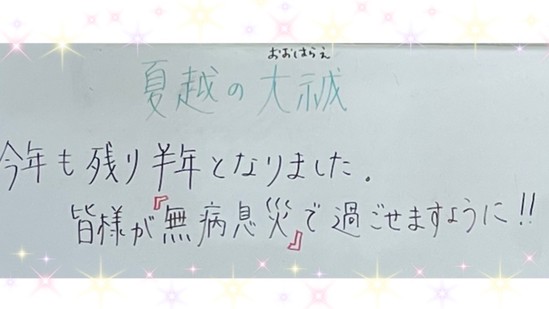 おおはらえ
夏越の大祓
今年も残り半年となりました。
皆様が『無病息災』で過ごせますように!!